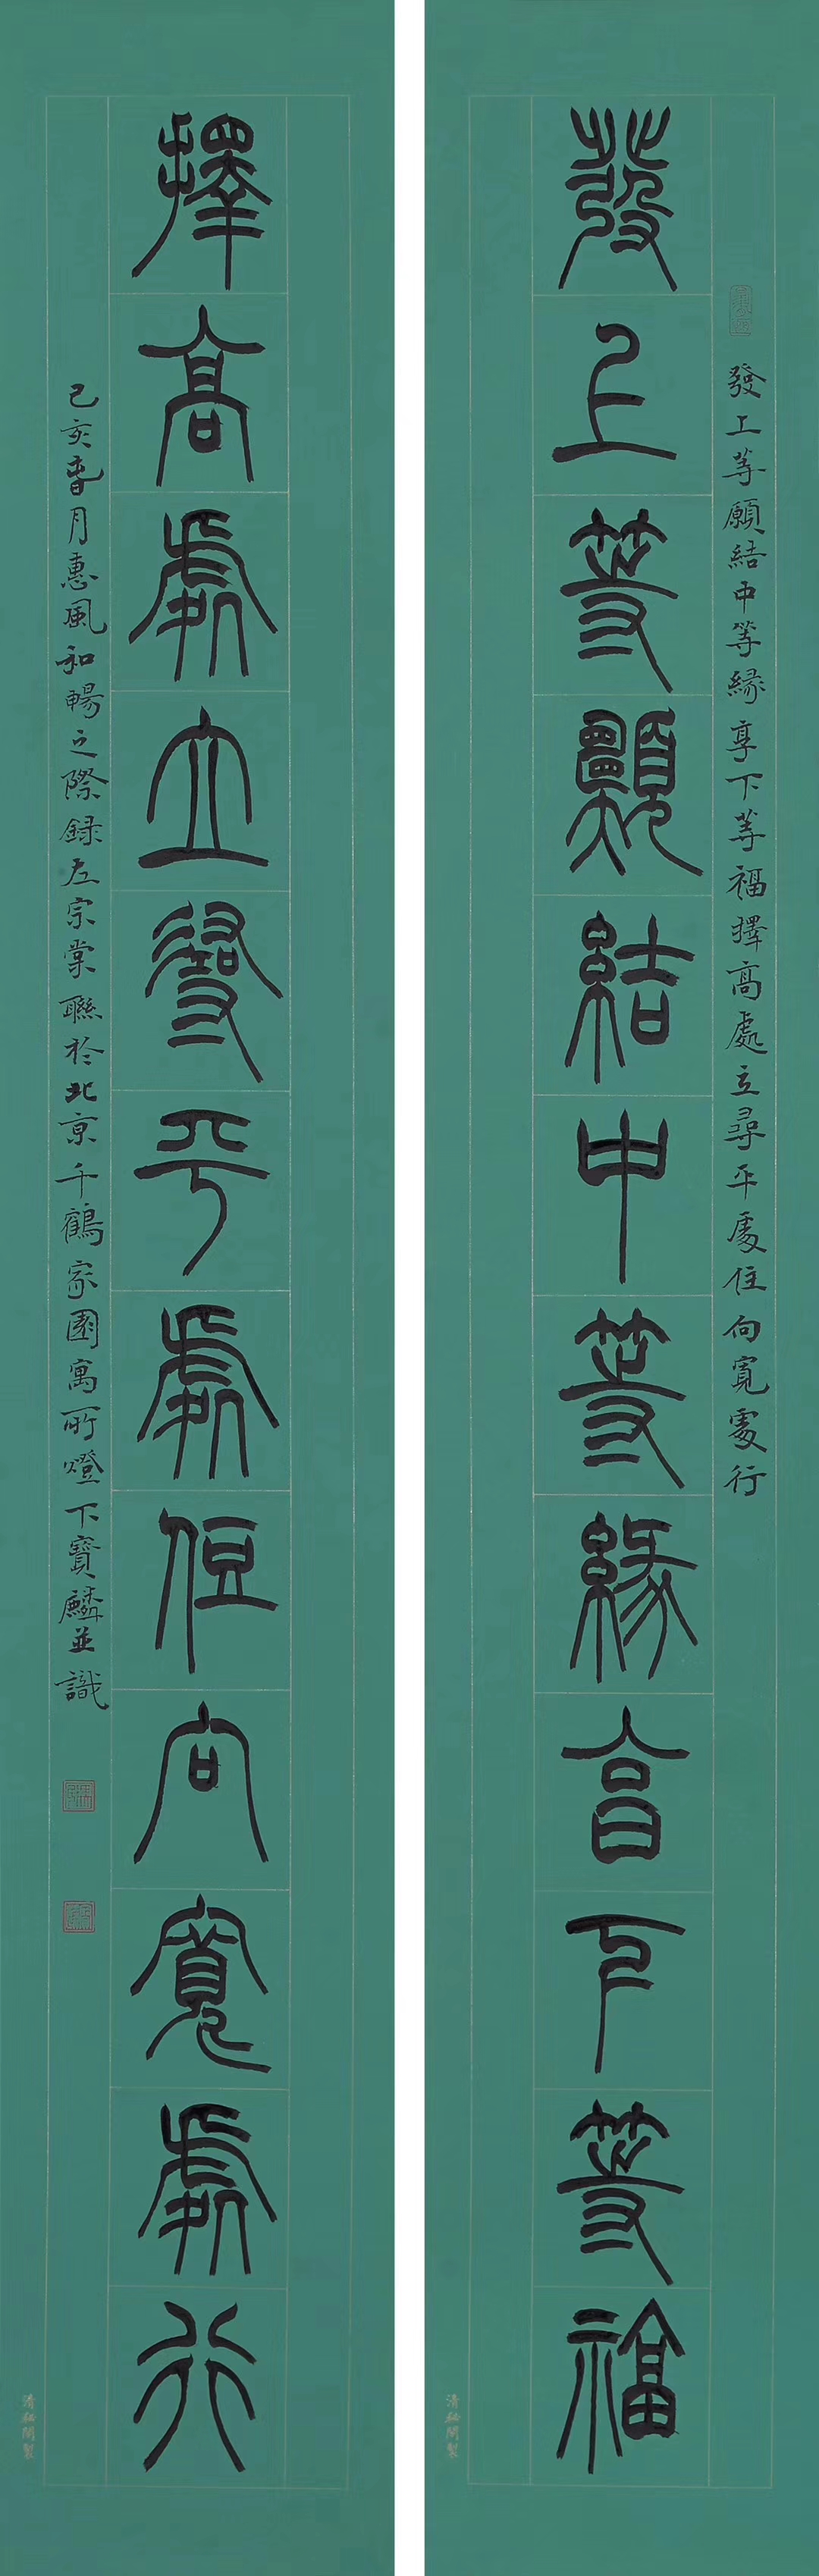 發上等願結中等緣享下等福
發上等願結中等緣享下等福擇高處立尋平處住向寬處行
擇高處立尋平處住向寬處行
己亥春月惠風和暢之際録左宗棠聯於北京千鶴家園寓所燈下寶麟並識
清祕閣製
清祕閣製